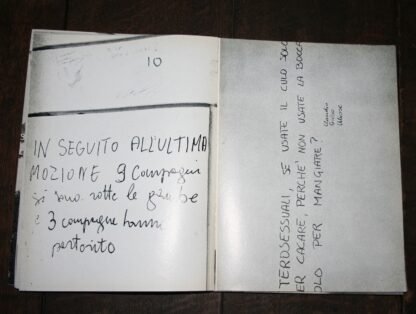 10
IN SEGUITO ALL'ULTIMA
MOZIONE 9 Compagni
si sono rotte le gambe
e 3 compagne hanno
partorito
TEROSESSUALI, SE USATE IL CULO SOLO
ER CACARE, PERCHÉ NON USATE LA BOCCA
OLO PER MANGIARE?